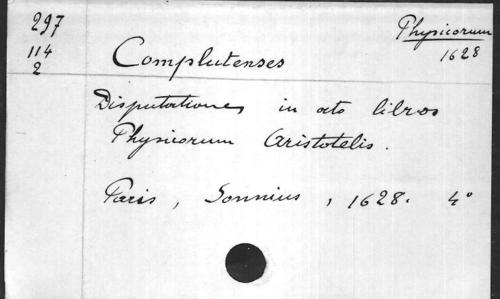 297
114
2
Physicorum
1628
Complutenses
Disputationes in octo libros
Physicorum Aristotelis.
Paris, Sonnius, 1628. 4°